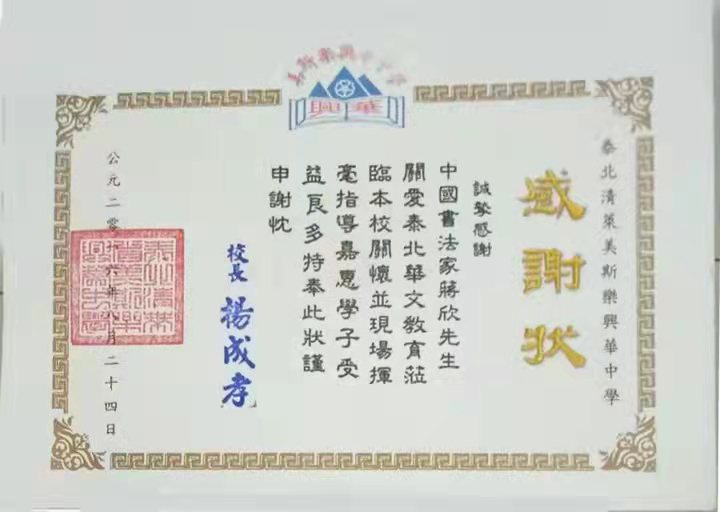 美斯樂興華中學
興華
泰北清萊美斯樂興華中學
感謝狀
誠摯感謝
中國書法家蔣欣先生
關愛泰北華文教育蒞
臨本校關懷並現場揮
毫指導嘉惠學子受
益良多特奉此狀謹
申謝忱
校長 楊成孝
公元二零一六年八月二十四日